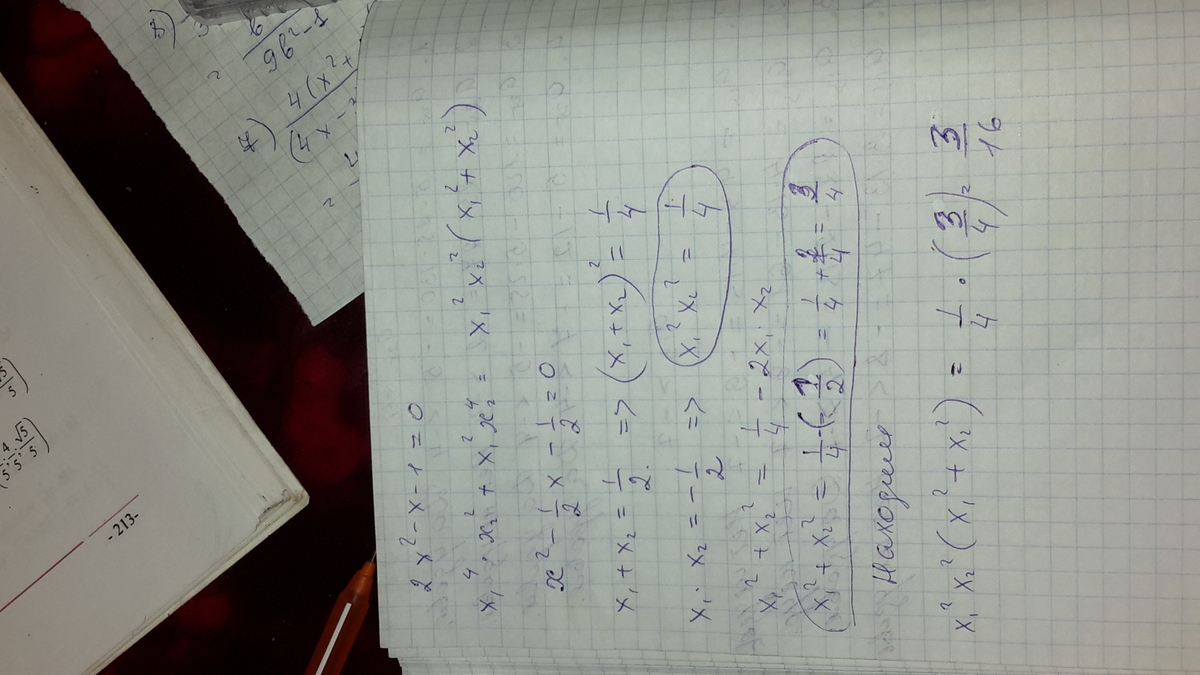 2x² - x - 1 = 0
x₁⁴ · x₂² + x₁² x₂⁴ = x₁² x₂² (x₁² + x₂²)
x² - 1/2 x - 1/2 = 0
x₁ + x₂ = 1/2 => (x₁ + x₂)² = 1/4
x₁ · x₂ = -1/2 => x₁² x₂² = 1/4
x₁² + x₂² = 1/4 - 2x₁ · x₂
x₁² + x₂² = 1/4 - (-1/2) = 1/4 + 2/4 = 3/4
Находим
x₁² x₂² (x₁² + x₂²) = 1/4 · (3/4) = 3/16
8)
9b² - 1
7)
4(x² +
(4x -
-213-